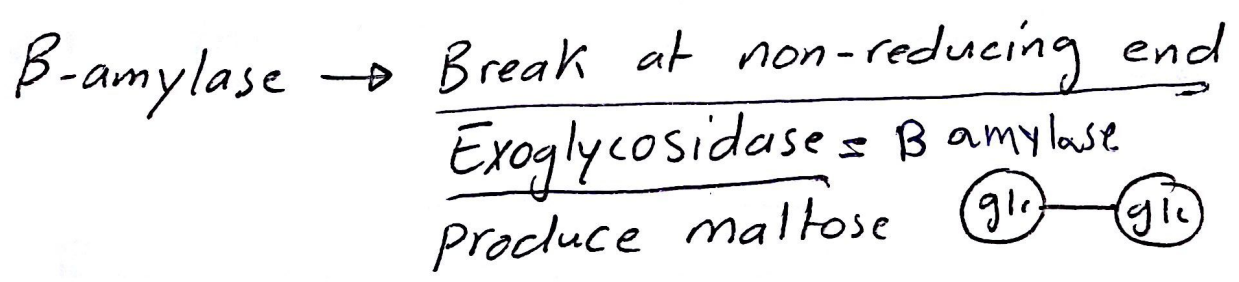 β-amylase → Break at non-reducing end
Exoglycosidase = B amylase
produce maltose glc — glc